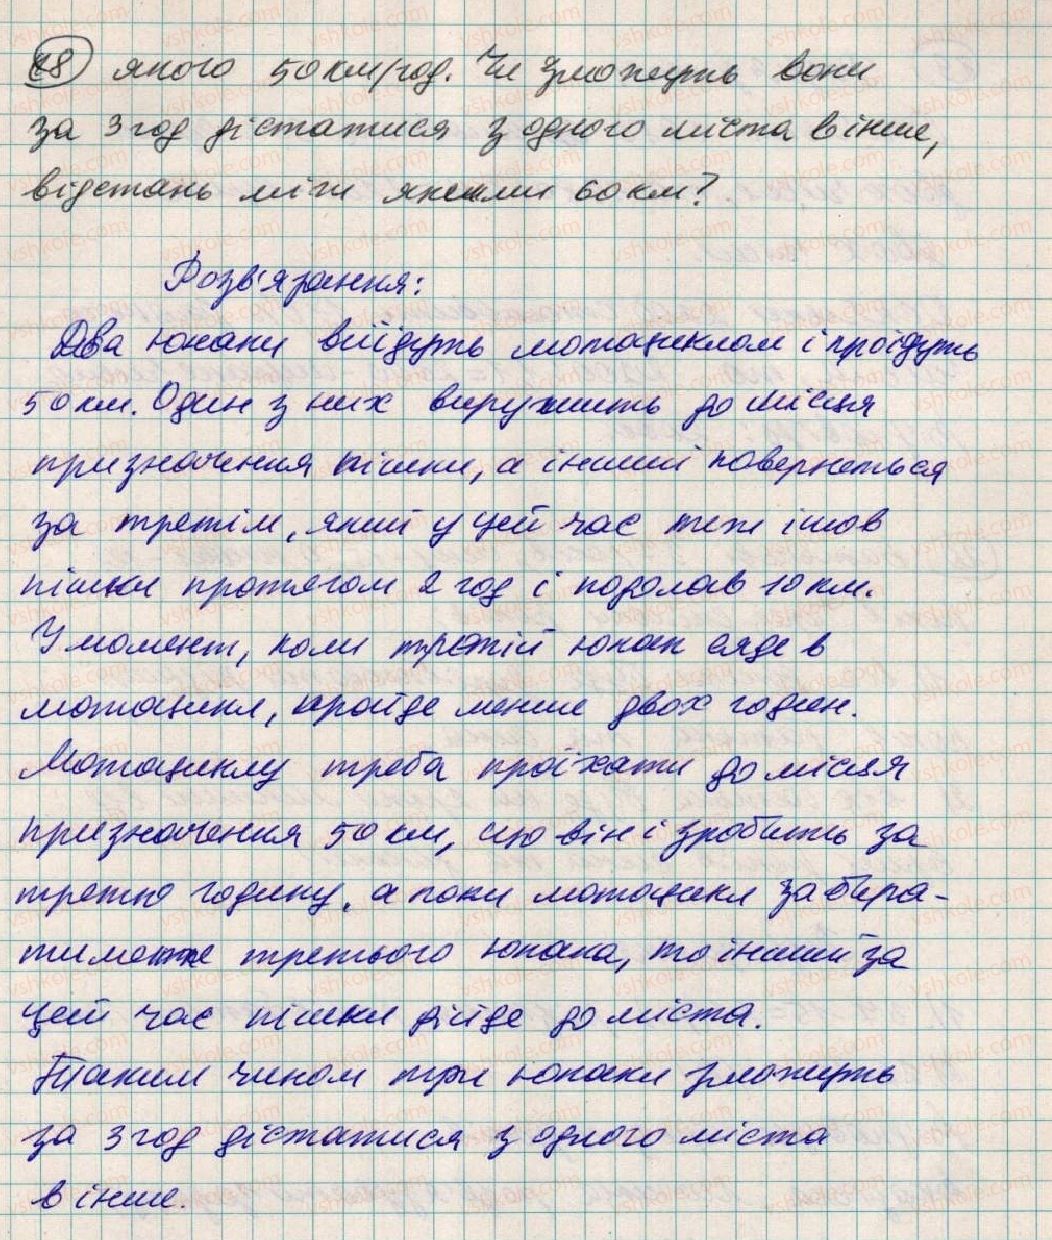 18 якого 50 км/год. Чи зможуть вони
за 3 год дістатися з одного міста в інше,
відстань між якими 60 км?
Розв'язання:
Два юнаки виїдуть мотоциклом і проїдуть
50 км. Один з них вирушить до місця
призначення пішки, а інший повернеться
за третім, який у цей час теж ішов
пішки протягом 2 год і подолав 10 км.
У момент, коли третій юнак сяде в
мотоцикл, пройде менше двох годин.
Мотоциклу треба проїхати до місця
призначення 50 км, що він і зробить за
третю годину, а поки мотоцикл забира-
тиме третього юнака, то інший за
цей час пішки дійде до міста.
Таким чином три юнаки зможуть
за 3 год дістатися з одного міста
в інше.